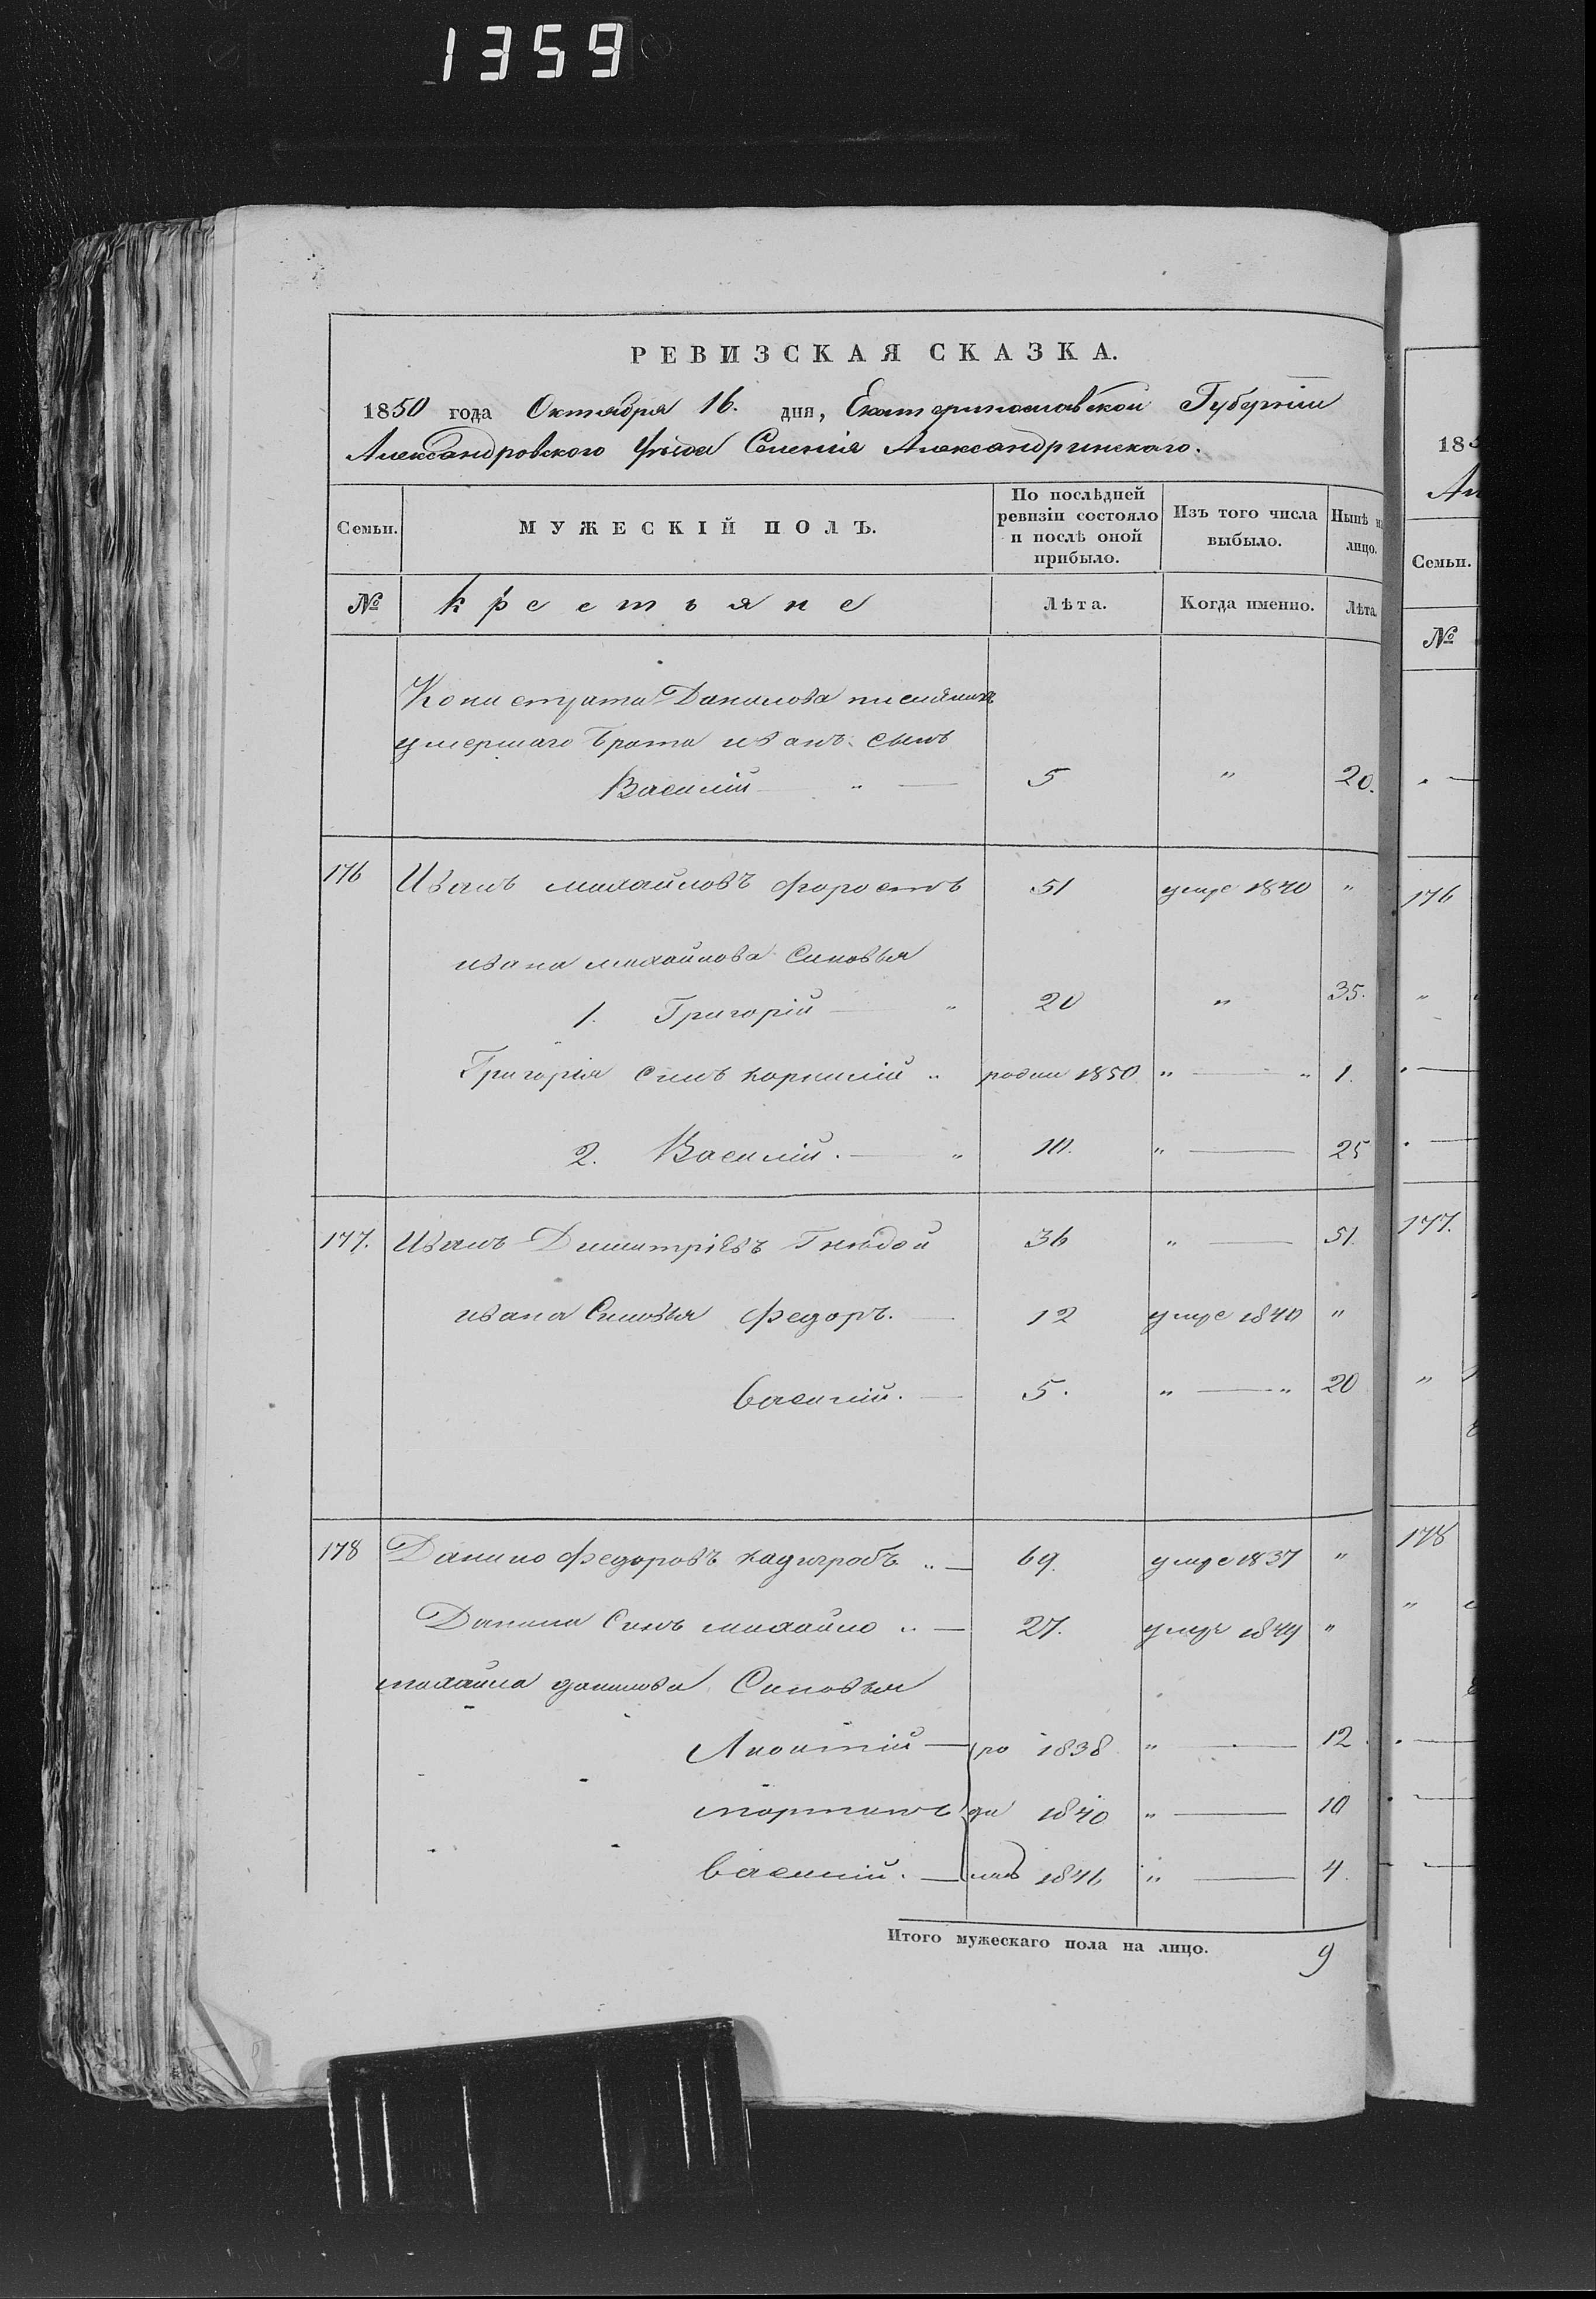 1359
РЕВИЗСКАЯ СКАЗКА.
1850 года Октября 16. дня, Екатеринославской Губернии
Александровского уѣзда Селенія Александринскаго.
Семьи. МУЖЕСКІЙ ПОЛЪ. По послѣдней ревизіи состояло и послѣ оной прибыло. Изъ того числа выбыло. Нынѣ на лицо.
№ крестьяне Лѣта. Когда именно. Лѣта.
Данилова
умершаго брата иванъ сынъ
Василій " — 5 " 20.
176 Иванъ михайловъ форостъ 51 умре 1840 "
ивана михайлова Синовья
1. Григорій — " 20 " 35.
Григорія синъ корнилій " родил 1850 " — " 1.
2. Василій. — " 10. " — 25
177. Иванъ Димитріевъ Гнѣдой 36 " — 51.
ивана Синовья федоръ. — 12 умре 1840 "
василій. — 5. " — " 20
178 Данило федоровъ кадигробъ " — 69. умре 1837 "
Данила Синъ михайло " — 27. умре 1849 "
михайла данилова Синовья
Леонтій — ро 1838 " — 12.
мартинъ ди 1840 " — 10
василій. — лись 1846 " — 4.
Итого мужескаго пола на лицо. 9
185
Ал
Семьи.
№
176
177.
178